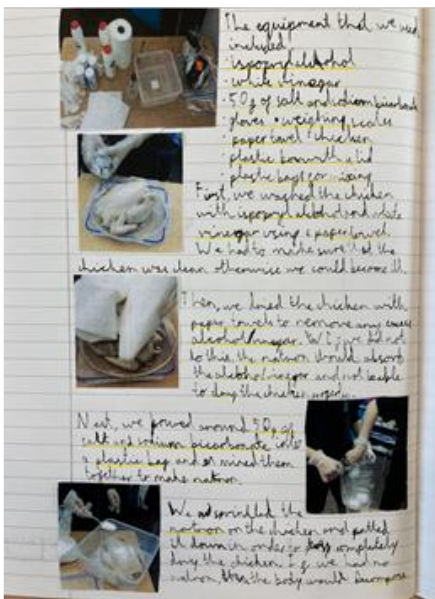 The equipment that we used
included
· isopropyl alcohol
· white vinegar
· 50g of salt and sodium bicarbonate
· gloves · weighing scales
· paper towel · chicken
· plastic box with a lid
· plastic bags for mixing
First, we washed the chicken
with isopropyl alcohol and white
vinegar using a paper towel.
We had to make sure that the
chicken was clean otherwise we could become ill.
Then, we dried the chicken with
paper towels to remove any excess
alcohol/vinegar. If, we did not
do this, the natron would absorb
the alcohol/vinegar and not be able
to dry the chicken
Next, we poured around 50g of
salt and sodium bicarbonate into
a plastic bag and mixed them
together to make natron.
We sprinkled the
natron on the chicken and patted
it down in order to completely
dry the chicken. If we had no
natron, then the body would